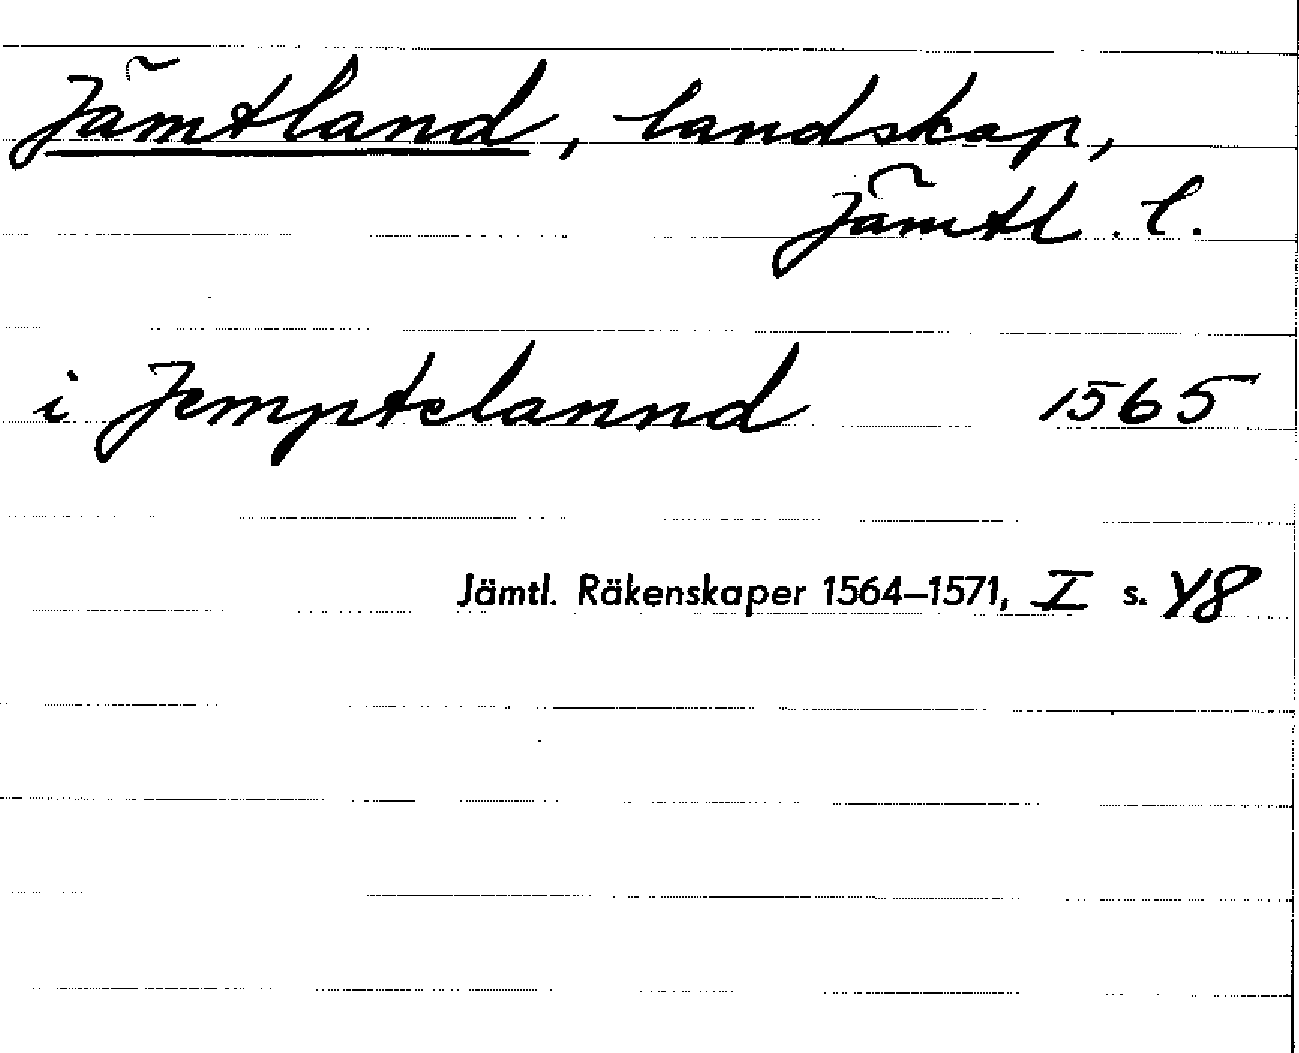 Jämtland, landskap,
Jämtl. l.
i Jemptelannd 1565
Jämtl. Räkenskaper 1564–1571, I s. 48